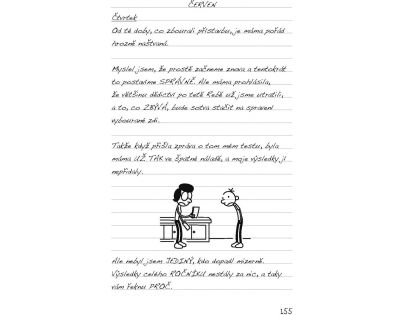 ČERVEN
Čtvrtek
Od té doby, co zbourali přístavbu, je máma pořád
hrozně naštvaná.
Myslel jsem, že prostě začneme znova a tentokrát
to postavíme SPRÁVNĚ. Ale máma prohlásila,
že většinu dědictví po tetě Rebě už jsme utratili,
a to, co ZBÝVÁ, bude sotva stačit na spravení
vybourané zdi.
Takže když přišla zpráva o tom mém testu, byla
máma UŽ TAK ve špatné náladě, a moje výsledky jí
nepřidaly.
Ale nebyl jsem JEDINÝ, kdo dopadl mizerně.
Výsledky celého ROČNÍKU nestály za nic, a taky
vám řeknu PROČ.
155